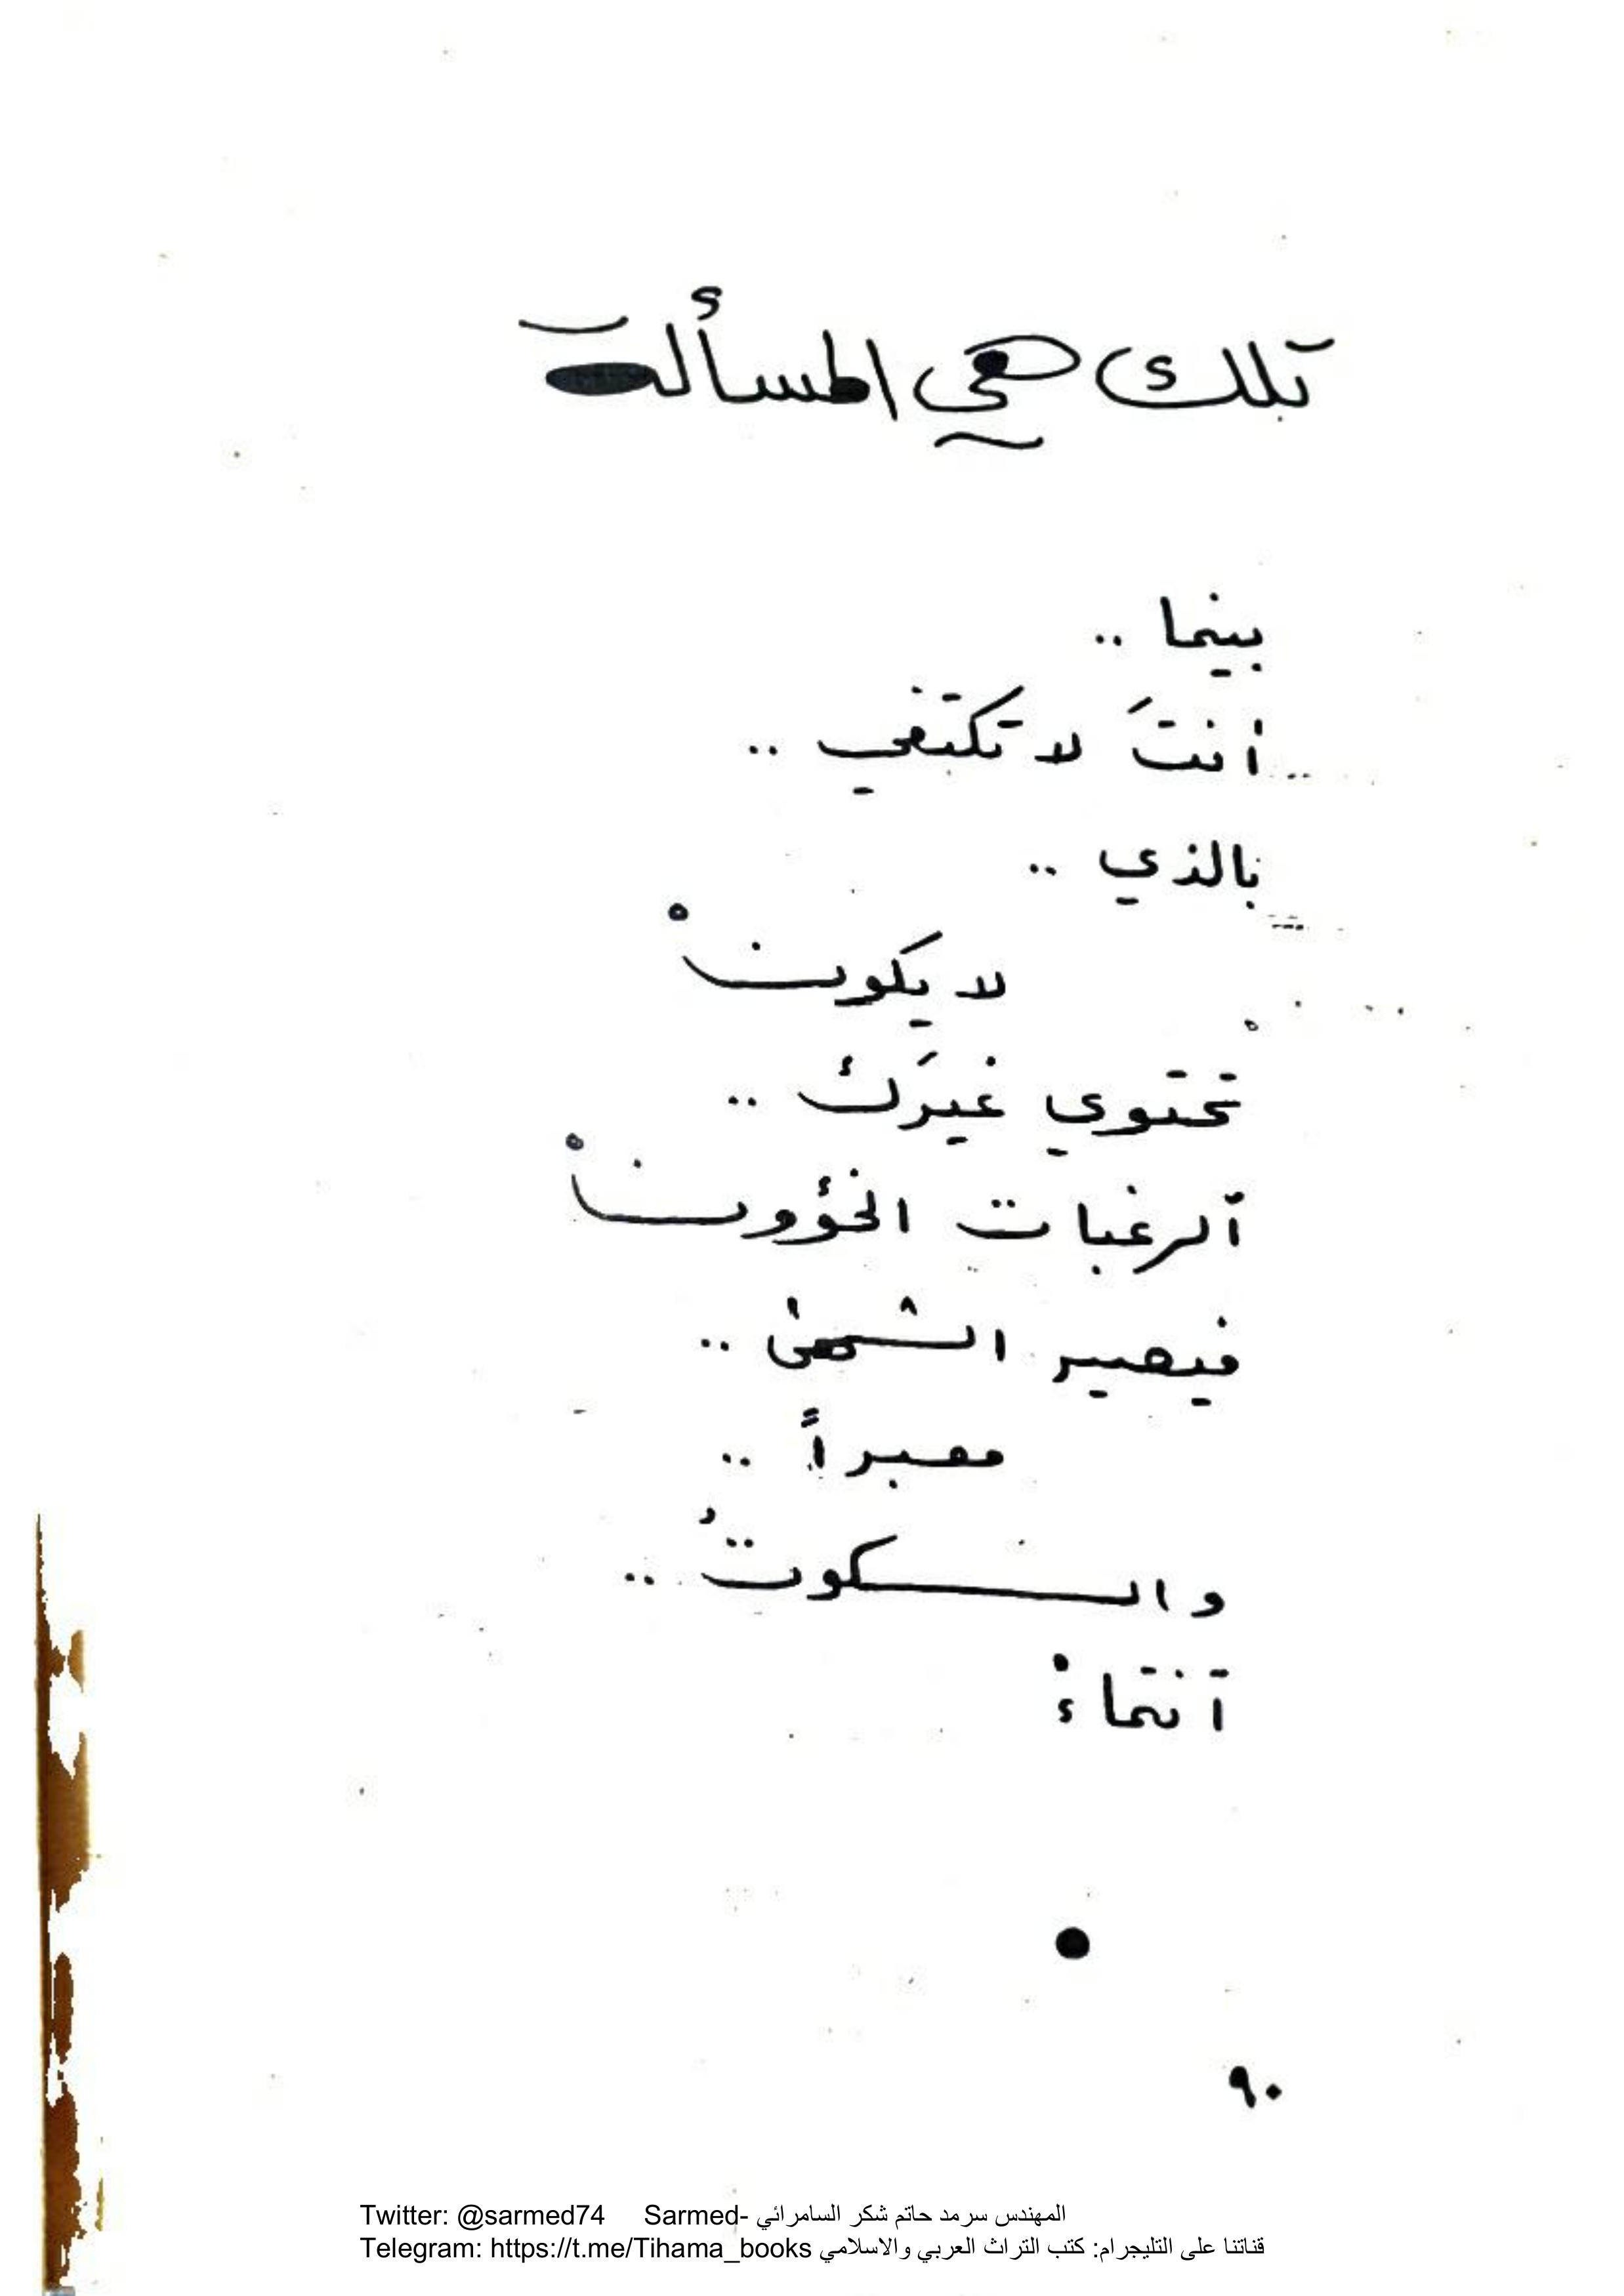 تلك هي المسألة
بينما ..
أنتَ لا تكتفي ..
بالذي ..
لا يكونْ
تحتوي غيرَك ..
آلرغبات الخؤونْ
فيصير
معبراً ..
والسكوتُ ..
آنتماءْ
٩٠
Twitter: @sarmed74 Sarmed- المهندس سرمد حاتم شكر السامرائي
Telegram: https://t.me/Tihama_books قناتنا على التليجرام: كتب التراث العربي والاسلامي